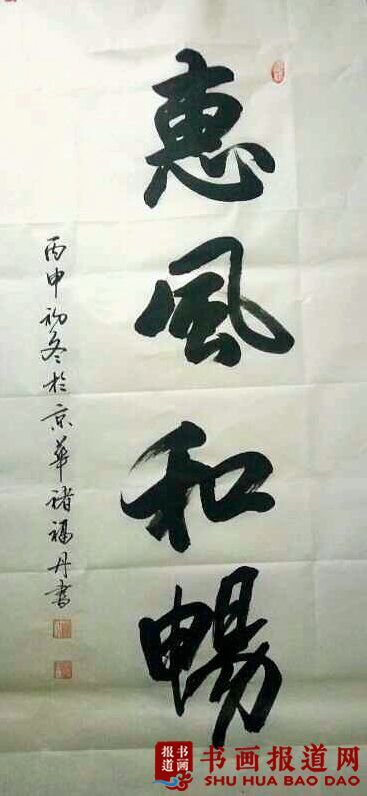 惠風和暢
丙申初冬於京華褚福丹書
报道
书画
书画报道网
SHU HUA BAO DAO